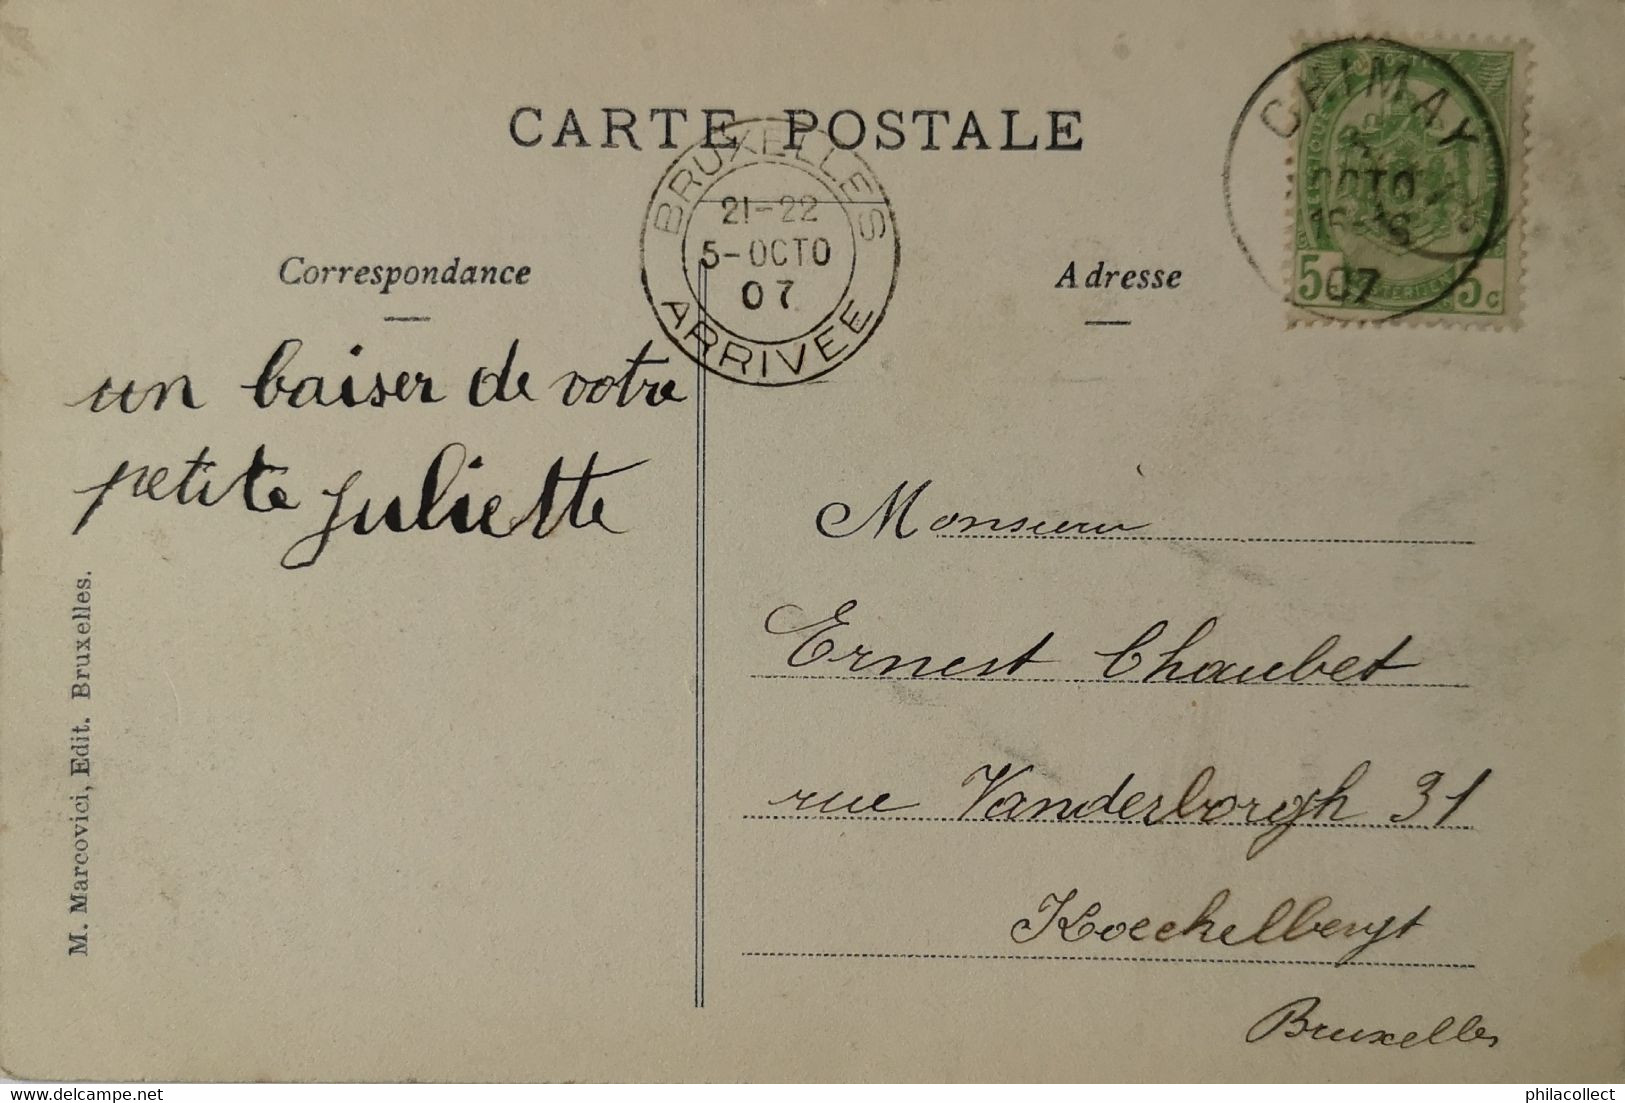 CARTE POSTALE
BRUXELLES
21-22
5-OCTO
07
ARRIVEE
CHIMAY
5
OCTO
07
5c 5c
Correspondance
Adresse
un baiser de votre
petite Juliette
Monsieur
Ernest Chaubet
rue Vanderborgh 31
Koeckelbergt
Bruxelles
M. Marcovici, Edit. Bruxelles.
philacollect